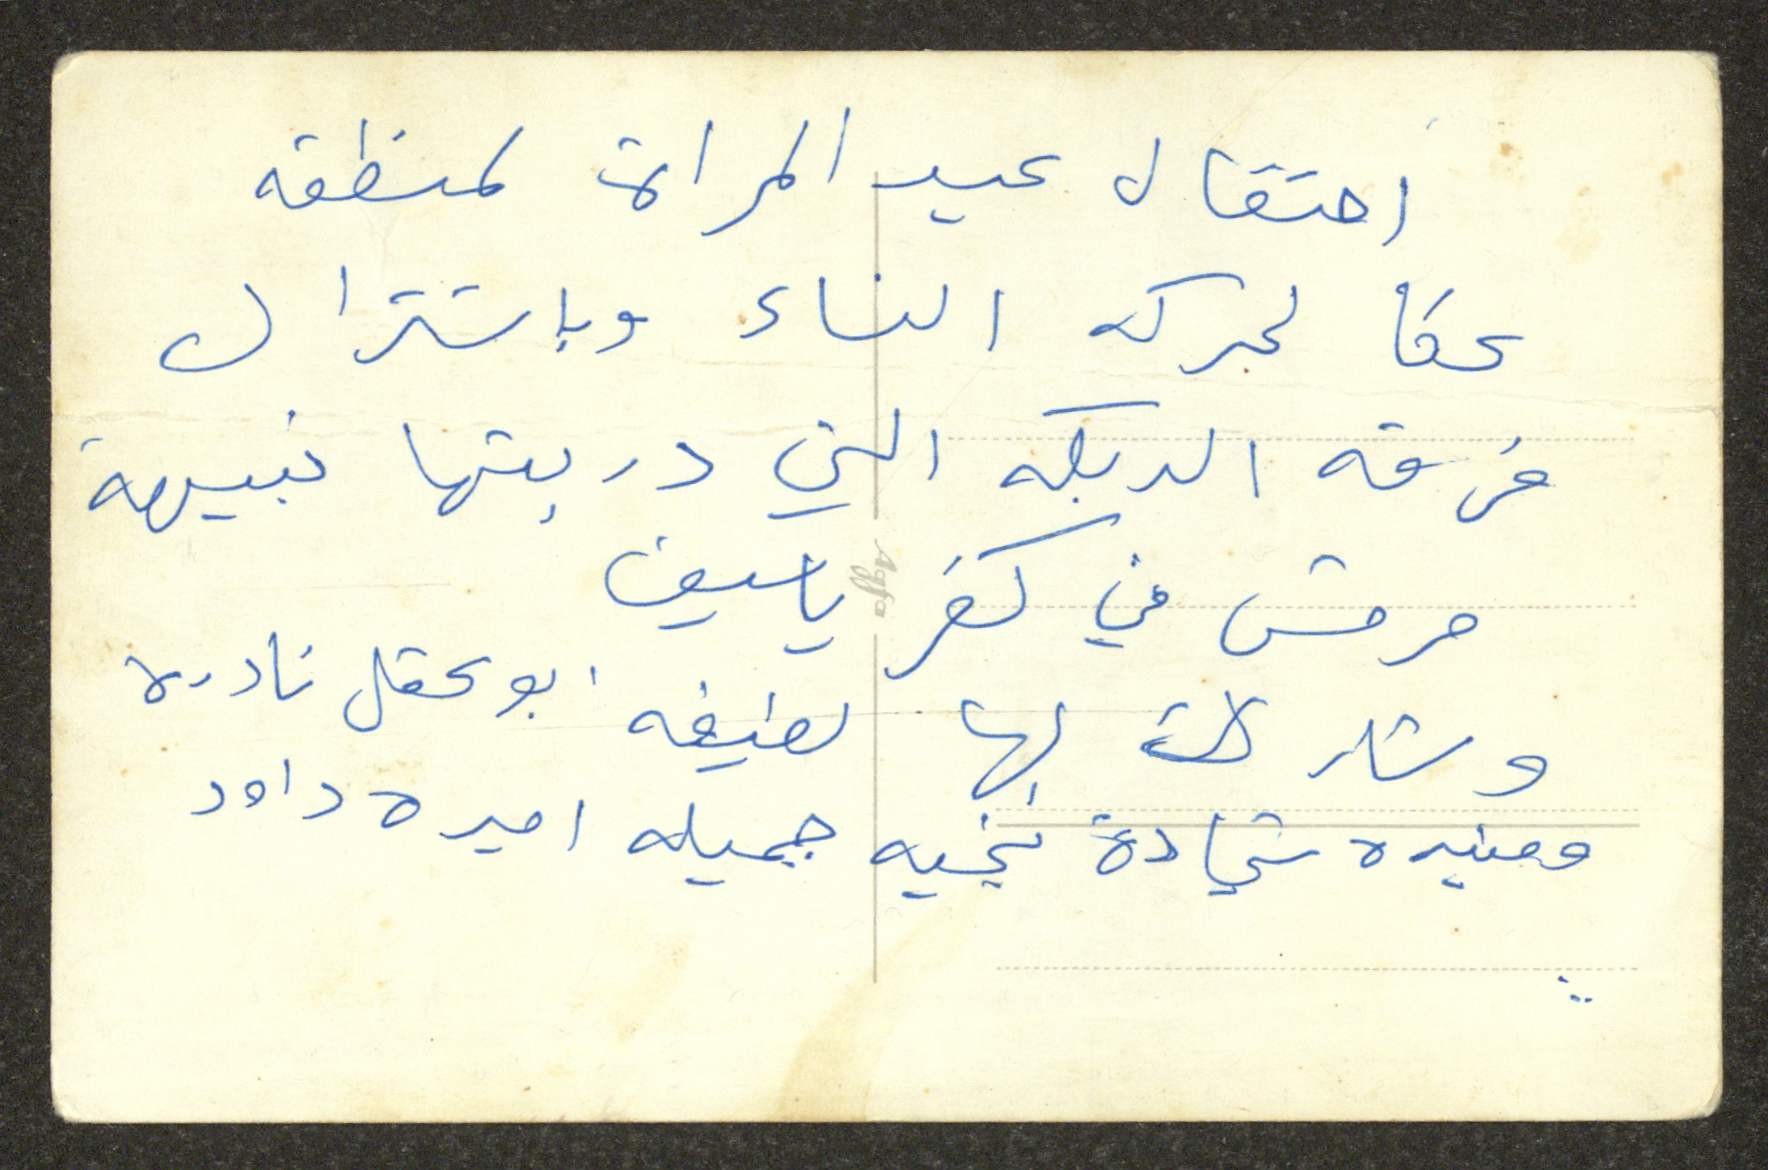 احتفال عيد المراة لمنطقه
عكا لحركه النساء وباشتراك
فرقه الدبكه التي دربتها نبيهة
مرقس في كفر ياسيف
وشاركت بها لطيفه ابو عقل نادره
ومنيره شحادة نجيبه جميله اميره داود
Agfa